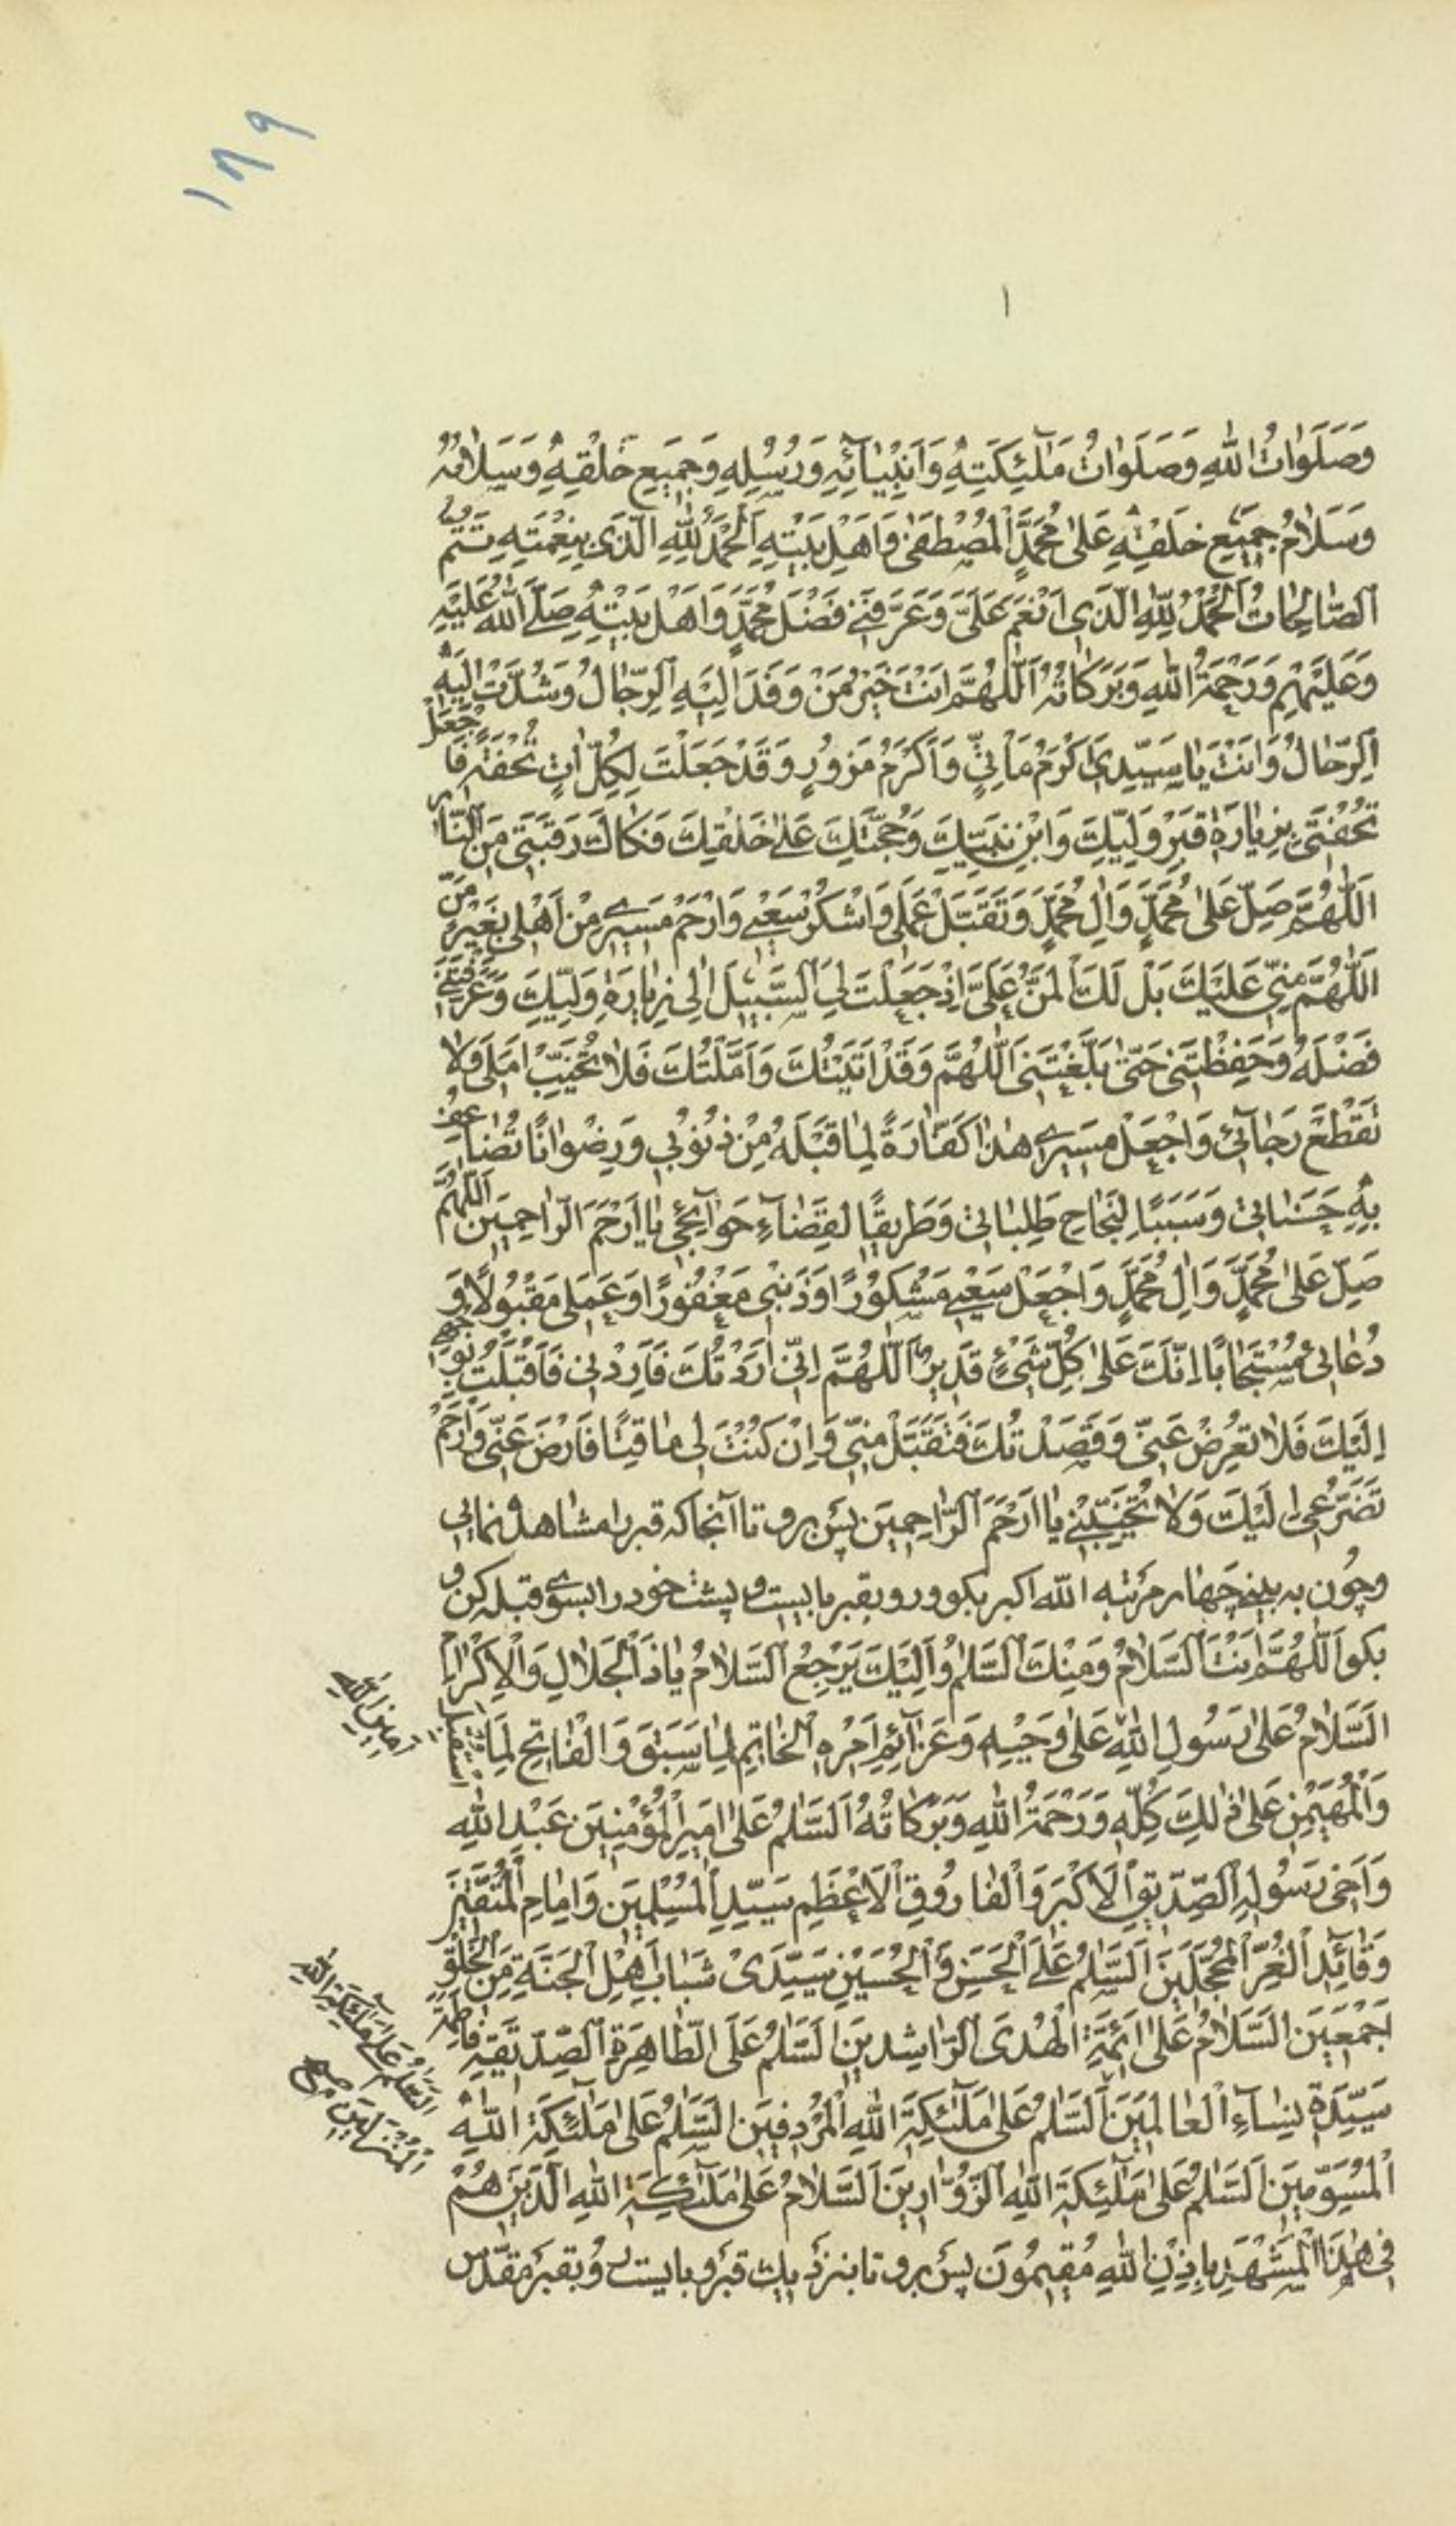 ١٨٩
١
وَصَلَوَاتُ اللهِ وَصَلَوَاتُ مَلٰٓئِكَتِهِ وَاَنْبِيٰآئِهِ وَرُسُلِهِ وَجَمِيعِ خَلْقِهِ وَسَلَامُهُ
وَسَلَامُ جَمِيعِ خَلْقِهِ عَلىٰ مُحَمَّدٍ الْمُصْطَفىٰ وَاَهْلِ بَيْتِهِ اَلْحَمْدُ لِلّٰهِ الَّذِي بِنِعْمَتِهِ تَتِمُّ
الصَّالِحَاتُ اَلْحَمْدُ لِلّٰهِ الَّذِي اَنْعَمَ عَلَيَّ وَعَرَّفَنِي فَضْلَ مُحَمَّدٍ وَاَهْلِ بَيْتِهِ صَلَّى اللهُ عَلَيْهِ
وَعَلَيْهِمْ وَرَحْمَةُ اللهِ وَبَرَكَاتُهُ اَللّٰهُمَّ اَنْتَ خَيْرُ مَنْ وَفَدَ اِلَيْهِ الرِّجَالُ وَشُدَّتْ اِلَيْهِ
الرِّحَالُ وَاَنْتَ يَا سَيِّدِي اَكْرَمُ مَأْتِيٍّ وَاَكْرَمُ مَزُورٍ وَقَدْ جَعَلْتَ لِكُلِّ اٰتٍ تُحْفَةً فَاجْعَلْ
تُحْفَتِي بِزِيَارَةِ قَبْرِ وَلِيِّكَ وَابْنِ نَبِيِّكَ وَحُجَّتِكَ عَلىٰ خَلْقِكَ فَكَاكَ رَقَبَتِي مِنَ النَّارِ
اَللّٰهُمَّ صَلِّ عَلىٰ مُحَمَّدٍ وَاٰلِ مُحَمَّدٍ وَتَقَبَّلْ عَمَلِي وَاشْكُرْ سَعْيِي وَارْحَمْ مَسِيرِي مِنْ اَهْلِي بِغَيْرِ مَنٍّ
اَللّٰهُمَّ مِنِّي عَلَيْكَ بَلْ لَكَ الْمَنُّ عَلَيَّ اِذْ جَعَلْتَ لِيَ السَّبِيلَ اِلىٰ زِيَارَةِ وَلِيِّكَ وَعَرَّفْتَنِي
فَضْلَهُ وَحَفِظْتَنِي حَتّىٰ بَلَّغْتَنِي اَللّٰهُمَّ وَقَدْ اَتَيْتُكَ وَاَمَّلْتُكَ فَلَا تُخَيِّبْ اَمَلِي وَلَا
تَقْطَعْ رَجَآئِي وَاجْعَلْ مَسِيرِي هٰذَا كَفَّارَةً لِمَا قَبْلَهُ مِنْ ذُنُوبِي وَرِضْوَانًا تُضَاعِفُ
بِهِ حَسَنَاتِي وَسَبَبًا لِنَجَاحِ طَلِبَاتِي وَطَرِيقًا لِقَضَآءِ حَوَآئِجِي يَا اَرْحَمَ الرَّاحِمِينَ اَللّٰهُمَّ
صَلِّ عَلىٰ مُحَمَّدٍ وَاٰلِ مُحَمَّدٍ وَاجْعَلْ سَعْيِي مَشْكُورًا وَذَنْبِي مَغْفُورًا وَعَمَلِي مَقْبُولًا وَ
دُعَائِي مُسْتَجَابًا اِنَّكَ عَلىٰ كُلِّ شَيْءٍ قَدِيرٌ اَللّٰهُمَّ اِنِّي اَرَدْتُكَ فَاَرِدْنِي فَاَقْبَلْتُ بِوَجْهِي
اِلَيْكَ فَلَا تُعْرِضْ عَنِّي وَقَصَدْتُكَ فَتَقَبَّلْ مِنِّي وَاِنْ كُنْتَ لِي مَاقِتًا فَارْضَ عَنِّي وَارْحَمْ
تَضَرُّعِي اِلَيْكَ وَلَا تُخَيِّبْنِي يَا اَرْحَمَ الرَّاحِمِينَ پس برو تا آنجا كه قبر را مشاهده نمائى
وچون به بينى چهار مرتبه الله اكبر بكو ورو بقبر بايست و پشت خود را بسوى قبله كن و
بكو اَللّٰهُمَّ اَنْتَ السَّلَامُ وَمِنْكَ السَّلَمُ وَاِلَيْكَ يَرْجِعُ السَّلَامُ يَا ذَا الْجَلَالِ وَالْاِكْرَامِ
اَلسَّلَامُ عَلىٰ رَسُولِ اللهِ عَلىٰ وَحْيِهِ وَعَزَآئِمِ اَمْرِهِ الْخَاتِمِ لِمَا سَبَقَ وَالْفَاتِحِ لِمَا اسْتُقْبِلَ
امين الله
وَالْمُهَيْمِنِ عَلىٰ ذٰلِكَ كُلِّهِ وَرَحْمَةُ اللهِ وَبَرَكَاتُهُ اَلسَّلَمُ عَلىٰ اَمِيرِ الْمُؤْمِنِينَ عَبْدِ اللهِ
وَاَخِي رَسُولِهِ الصِّدِّيقِ الْاَكْبَرِ وَالْفَارُوقِ الْاَعْظَمِ سَيِّدِ الْمُسْلِمِينَ وَاِمَامِ الْمُتَّقِينَ
وَقَائِدِ الْغُرِّ الْمُحَجَّلِينَ اَلسَّلَمُ عَلَى الْحَسَنِ وَالْحُسَيْنِ سَيِّدَيْ شَبَابِ اَهْلِ الْجَنَّةِ مِنَ الْخَلْقِ
اَجْمَعِينَ اَلسَّلَامُ عَلىٰ اَئِمَّةِ الْهُدَى الرَّاشِدِينَ اَلسَّلَمُ عَلَى الطَّاهِرَةِ الصِّدِّيقَةِ فَاطِمَةَ
سَيِّدَةِ نِسَآءِ الْعَالَمِينَ اَلسَّلَمُ عَلىٰ مَلٰٓئِكَةِ اللهِ الْمُرْدِفِينَ اَلسَّلَمُ عَلىٰ مَلٰٓئِكَةِ اللهِ
السَّلَمُ عَلىٰ مَلٰٓئِكَةِ اللهِ
الْمُنْزَلِينَ صح
الْمُسَوِّمِينَ اَلسَّلَمُ عَلىٰ مَلٰٓئِكَةِ اللهِ الزَّوَّارِينَ اَلسَّلَامُ عَلىٰ مَلٰٓئِكَةِ اللهِ الَّذِينَ هُمْ
فِي هٰذَا الْمَشْهَدِ بِاِذْنِ اللهِ مُقِيمُونَ پس برو تا بنزديك قبر و بايست و بقبر مقدّس